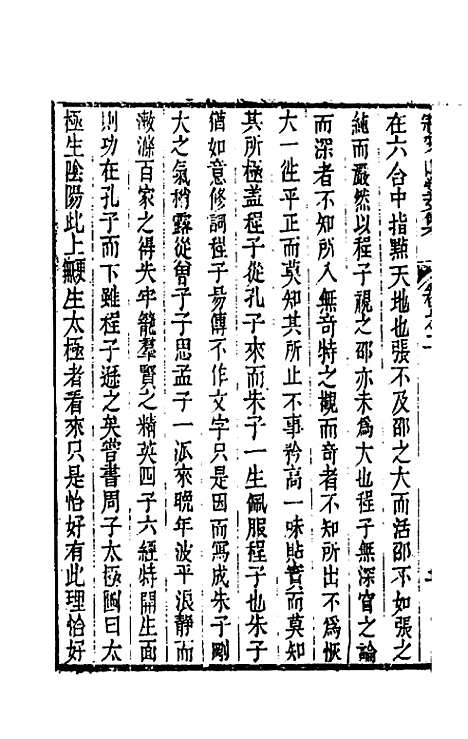 卷之二
在六合中指點天地也張不及邵之大而活邵不如張之
純而嚴然以程子視之邵亦未爲大也程子無深窅之論
而深者不知所入無奇特之觀而奇者不知所出不爲恢
大一徃平正而莫知其所止不事矜高一味貼實而莫知
其所極盖程子從孔子來而朱子一生佩服程子也朱子
猶如意修詞程子易傳不作文字只是因而寫成朱子剛
大之氣稍露從曾子子思孟子一派來晚年波平浪靜而
漱滌百家之得失牢籠羣賢之精英四子六經特開生面
則功在孔子而下雖程子遜之矣嘗書周子太極圖曰太
極生陰陽此上顯生太極者看來只是恰好有此理恰好